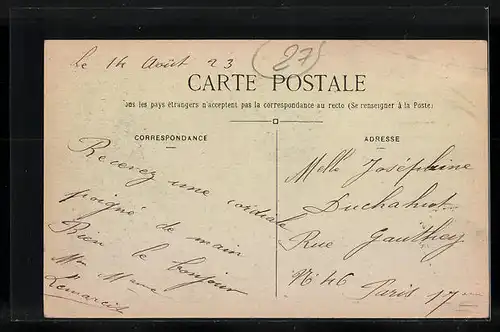 Le 14 Août 23
27
CARTE POSTALE
Tous les pays étrangers n'acceptent pas la correspondance au recto (Se renseigner à la Poste)
CORRESPONDANCE
Recevez une cordiale
poigné de main
Bien le bonjour
Mr Mme
ADRESSE
Melle Joséphine
Duchahut
Rue Gauthey
N 46
Paris 17